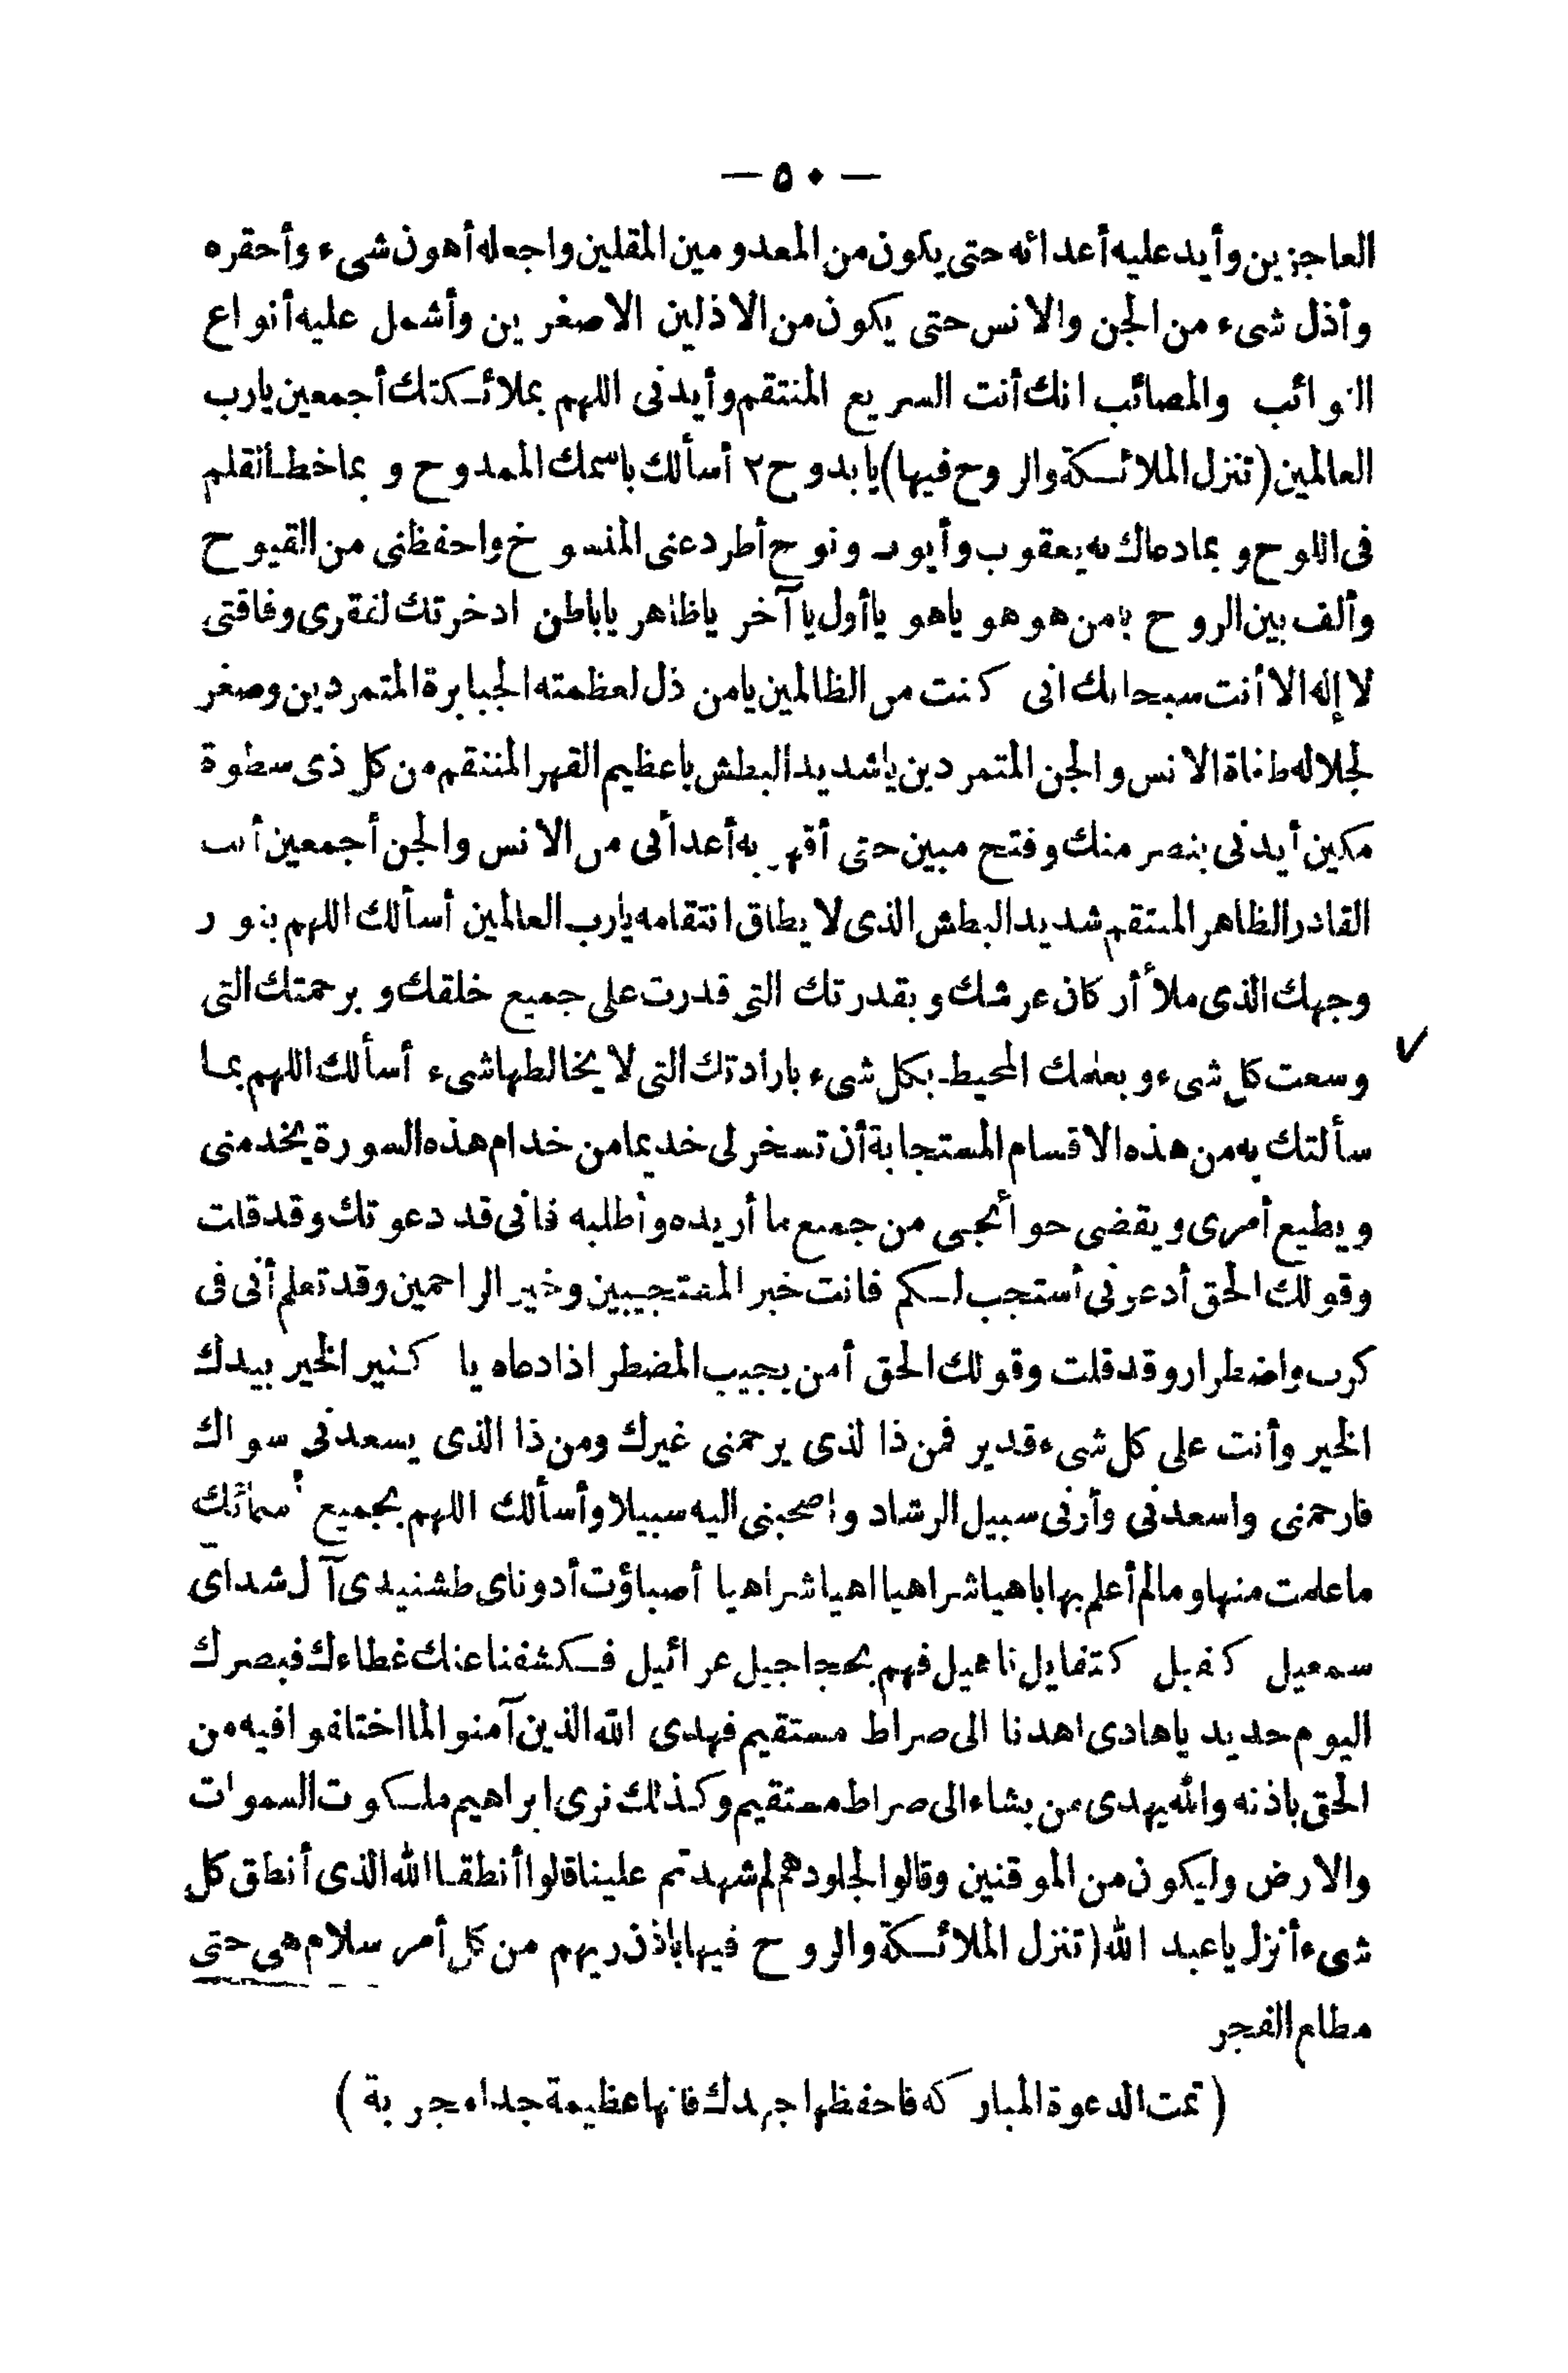 — ٥٠ —
العاجزين وأيد عليه أعدائه حتى يكون من المعدومين المقلين واجعله أهون شىء وأحقره
وأذل شىء من الجن والانس حتى يكون من الاذلين الاصغرين وأشمل عليه أنواع
النوائب والمصائب انك أنت السريع المنتقم وأيدنى اللهم بملائكتك أجمعين يارب
العالمين (تنزل الملائكة والروح فيها) يا بدوح ٢ أسألك باسمك الممدوح و بما خط القلم
فى اللوح و بما دعاك به يعقوب وأيوب ونوح أطرد عنى المنسوخ واحفظنى من القيوح
وألف بين الروح يامن هو هو ياهو ياأول يا آخر ياظاهر ياباطن ادخرتك لفقرى وفاقتى
لا إله الا أنت سبحانك انى كنت من الظالمين يامن ذل لعظمته الجبابرة المتمردين وصغر
لجلاله طغاة الانس والجن المتمردين ياشديد البطش ياعظيم القهر المنتقم من كل ذى سطوة
مكين أيدنى بنصر منك وفتح مبين حتى أقهر به أعدأئى من الانس والجن أجمعين أنت
القادر الظاهر المنتقم شديد البطش الذى لا يطاق انتقامه يارب العالمين أسألك اللهم بنور
وجهك الذى ملأ أركان عرشك و بقدرتك التى قدرت على جميع خلقك و برحمتك التى
وسعت كل شىء و بعلمك المحيط بكل شىء بارادتك التى لا يخالطها شىء أسألك اللهم بما
سألتك به من هذه الاقسام المستجابة أن تسخر لى خديما من خدام هذه السورة يخدمنى
و يطيع أمرى و يقضى حوأئجى من جميع ما أريده وأطلبه فانى قد دعوتك وقد قلت
وقولك الحق أدعونى أستجب لكم فانت خير المستجيبين وخير الراحمين وقد تعلم أنى فى
كرب واضطرار وقد قلت وقولك الحق أمن يجيب المضطر اذا دعاه يا كثير الخير بيدك
الخير وأنت على كل شىء قدير فمن ذا لذى يرحمنى غيرك ومن ذا الذى يسعدنى سواك
فارحمنى واسعدنى وأرنى سبيل الرشاد واصحبنى اليه سبيلا وأسألك اللهم بجميع أسمائك
ما علمت منها وما لم أعلم بها ياهيا شراهيا اهيا شراهيا أصباؤت أدوناى طشنيدى آل شداى
سمعيل كفيل كتفايل ناعيل فهم بحجاجيل عرائيل فكشفنا عنك غطاءك فبصرك
اليوم حديد ياهادى اهدنا الى صراط مستقيم فهدى الله الذين آمنوا لما اختلفوا فيه من
الحق باذنه والله يهدى من يشاء الى صراط مستقيم وكذلك نرى ابراهيم ملكوت السموات
والارض وليكون من الموقنين وقالوا لجلودهم لم شهدتم علينا قالوا أنطقنا الله الذى أنطق كل
شىء أنزل ياعبد الله (تنزل الملائكة والروح فيها باذن ربهم من كل أمر سلام هى حتى
مطلع الفجر
(تمت الدعوة المباركه فاحفظها جهدك فانها عظيمة جدا مجربة)